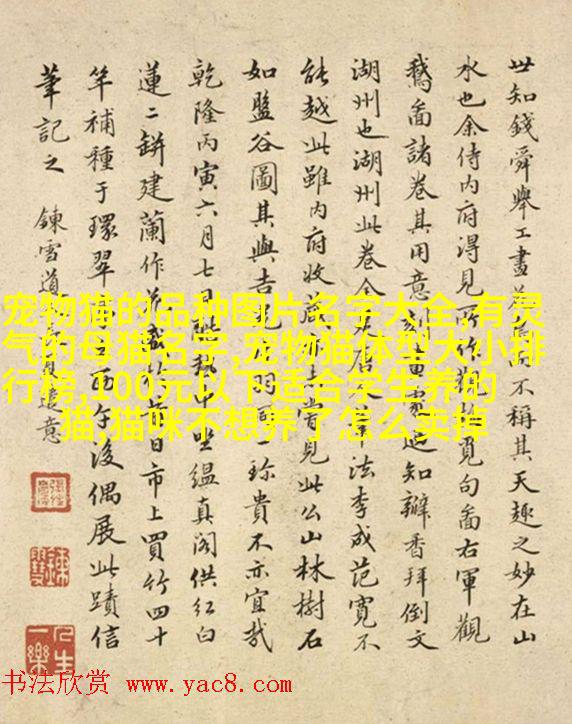 世知錢舜舉工畫而不稱其天趣之妙在山
水也余侍内府得見所作覓句畵右軍觀
鵝畵諸卷其用意知瓣香拜倒文
湖州也湖州此卷余法李成范寬不
能越此雖内府收嘗見此公山林樹石
如盤谷圖其與吉光羽同珎貴不亦宜哉
乾隆丙寅六月七日酷熱中坐緼真閣供紅白
蓮二缾建蘭作花盛前日市上買竹四十
竿補種于環翠酉午後偶展此蹟信
筆記之 鍊雪道遠意
宠物猫的品种图片名字大全,有灵
气的母猫名字,宠物猫体型大小排
行榜,100元以下适合学生养的
猫,猫咪不想养了怎么卖掉
人生一樂
书法欣赏 www.yac8.com